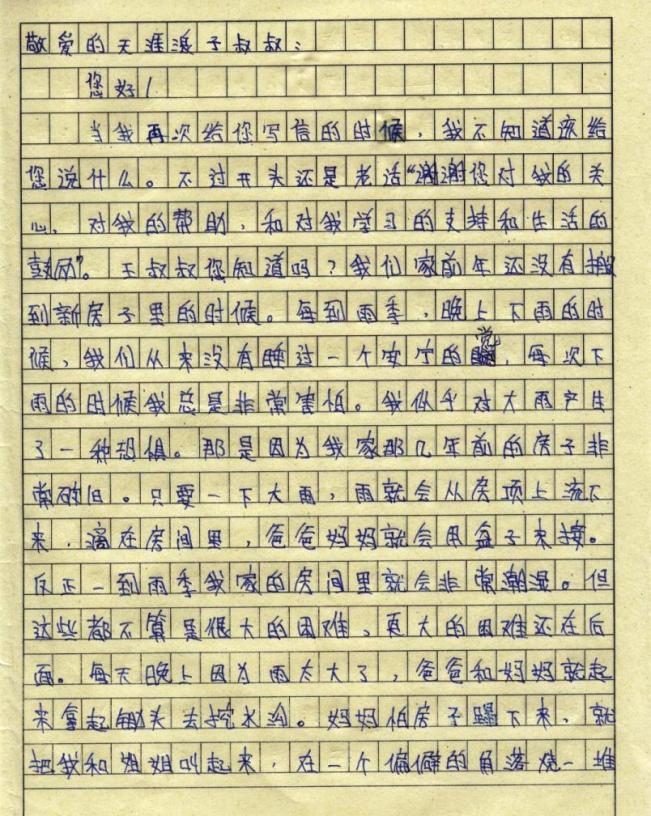 敬爱的天涯浪子叔叔：
您好！
当我再次给您写信的时候，我不知道该给
您说什么。不过开头还是老话“谢谢您对我的关
心，对我的帮助，和对我学习的支持和生活的
鼓励”。王叔叔您知道吗？我们家前年还没有搬
到新房子里的时候。每到雨季，晚上下雨的时
候，我们从来没有睡过一个安宁的觉，每次下
雨的时候我总是非常害怕。我似乎对大雨产生
了一种恐惧。那是因为我家那几年前的房子非
常破旧。只要一下大雨，雨就会从房顶上流下
来，滴在房间里，爸爸妈妈就会用盆子来接。
反正一到雨季我家的房间里就会非常潮湿。但
这些都不算是很大的困难，更大的困难还在后
面。每天晚上因为雨太大了，爸爸和妈妈就起
来拿起锄头去挖水沟。妈妈怕房子蹋下来，就
把我和姐姐叫起来，在一个偏僻的角落烧一堆